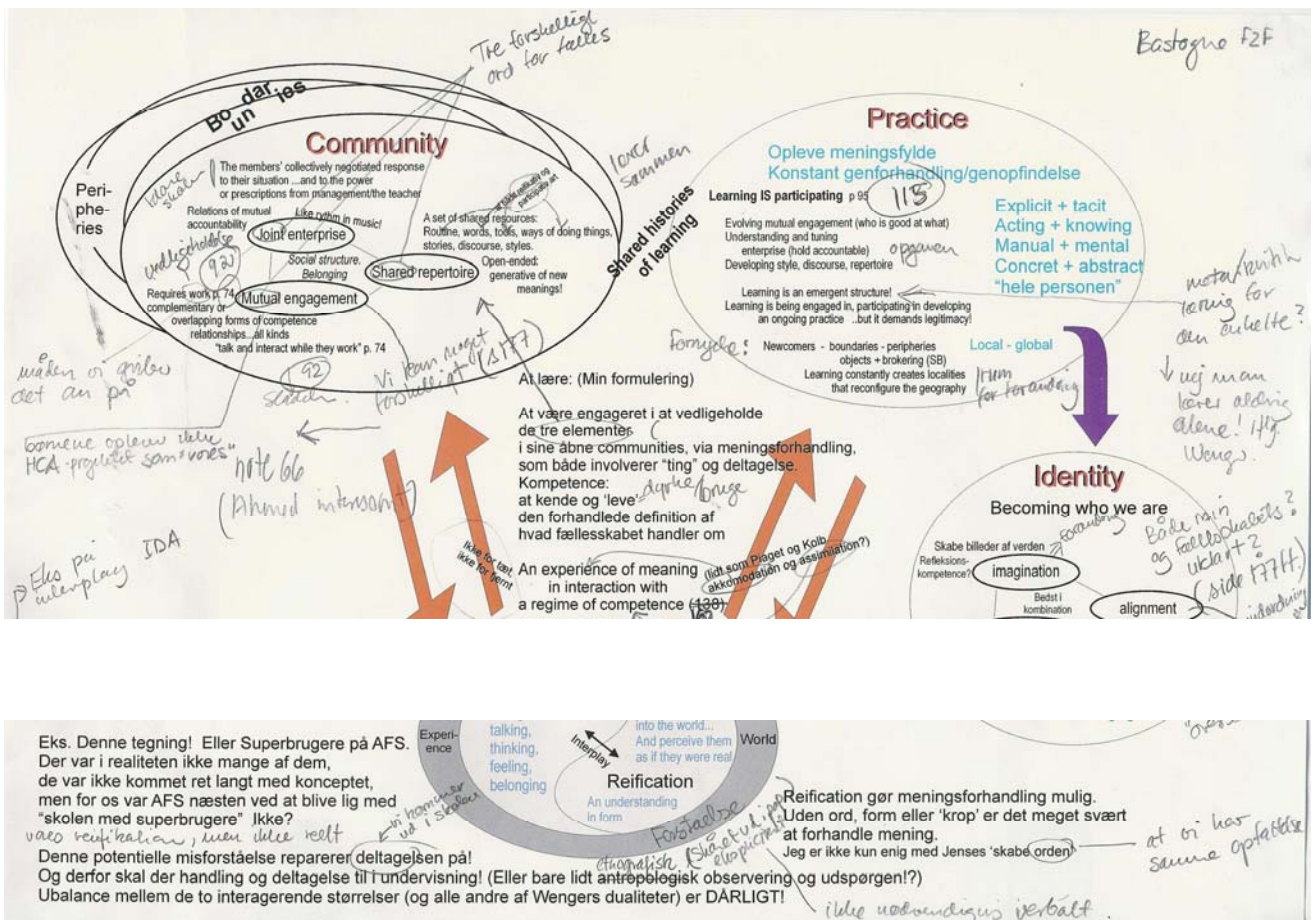 Tre forskellige
ord for fælles
Bastogne F2F
Boundaries
Community
Peri-
phe-
ries
The members' collectively negotiated response
to their situation ...and to the power
or prescriptions from management/the teacher
Relations of mutual
accountability
Like rythm in music!
Joint enterprise
Social structure.
Belonging
vedligeholdelse
92
A set of shared resources:
Routine, words, tools, ways of doing things,
stories, discourse, styles.
Shared repertoire
Open-ended:
generative of new
meanings!
Requires work p. 74
Mutual engagement
complementary or
overlapping forms of competence
relationships...all kinds
"talk and interact while they work" p. 74
92
sammen
Shared histories
of learning
Practice
Opleve meningsfylde
Konstant genforhandling/genopfindelse
Learning IS participating p 95
115
Evolving mutual engagement (who is good at what)
Understanding and tuning
enterprise (hold accountable)
opgaven
Developing style, discourse, repertoire
Explicit + tacit
Acting + knowing
Manual + mental
Concret + abstract
"hele personen"
Learning is an emergent structure!
Learning is being engaged in, participating in developing
an ongoing practice ..but it demands legitimacy!
Fornyelse:
Newcomers - boundaries - peripheries
objects + brokering (SB)
Local - global
Learning constantly creates localities
that reconfigure the geography
rum
for forandring
læring for
den enkelte?
nej man
lærer aldrig
alene! iflg
Wenger.
måden vi griber
det an på
Vi kan noget
forskelligt (s 177)
børnene oplever ikke
HCA-projektet som "vores"
note 66
(Ahmed interessant)
Eks på
interplay IDA
At lære: (Min formulering)
At være engageret i at vedligeholde
de tre elementer
i sine åbne communities, via meningsforhandling,
som både involverer "ting" og deltagelse.
Kompetence:
at kende og 'leve'
dyrke/bruge
den forhandlede definition af
hvad fællesskabet handler om
Ikke for tæt,
ikke for fjernt
An experience of meaning
in interaction with
a regime of competence (138)
(lidt som Piaget og Kolb
akkomodation og assimilation?)
Identity
Becoming who we are
Skabe billeder af verden
Forandring
Refleksions-
kompetence?
imagination
Bedst i
kombination
alignment
Både min
og fællesskabets?
(side 177ff.)
Eks. Denne tegning! Eller Superbrugere på AFS.
Der var i realiteten ikke mange af dem,
de var ikke kommet ret langt med konceptet,
men for os var AFS næsten ved at blive lig med
"skolen med superbrugere" Ikke?
vores reifikation, men ikke reelt
vi kommer
ud i skolen
Denne potentielle misforståelse reparerer deltagelsen på!
Og derfor skal der handling og deltagelse til i undervisning! (Eller bare lidt antropologisk observering og udspørgen!?)
etnografisk
Ubalance mellem de to interagerende størrelser (og alle andre af Wengers dualiteter) er DÅRLIGT!
Experi-
ence
talking,
thinking,
feeling,
belonging
Interplay
into the world...
And perceive them
as if they were real
World
Reification
An understanding
in form
Forståelse
Reification gør meningsforhandling mulig.
Uden ord, form eller 'krop' er det meget svært
at forhandle mening.
Jeg er ikke kun enig med Jenses 'skabe orden'
at vi har
samme opfattelse
ikke nødvendigvis verbalt.